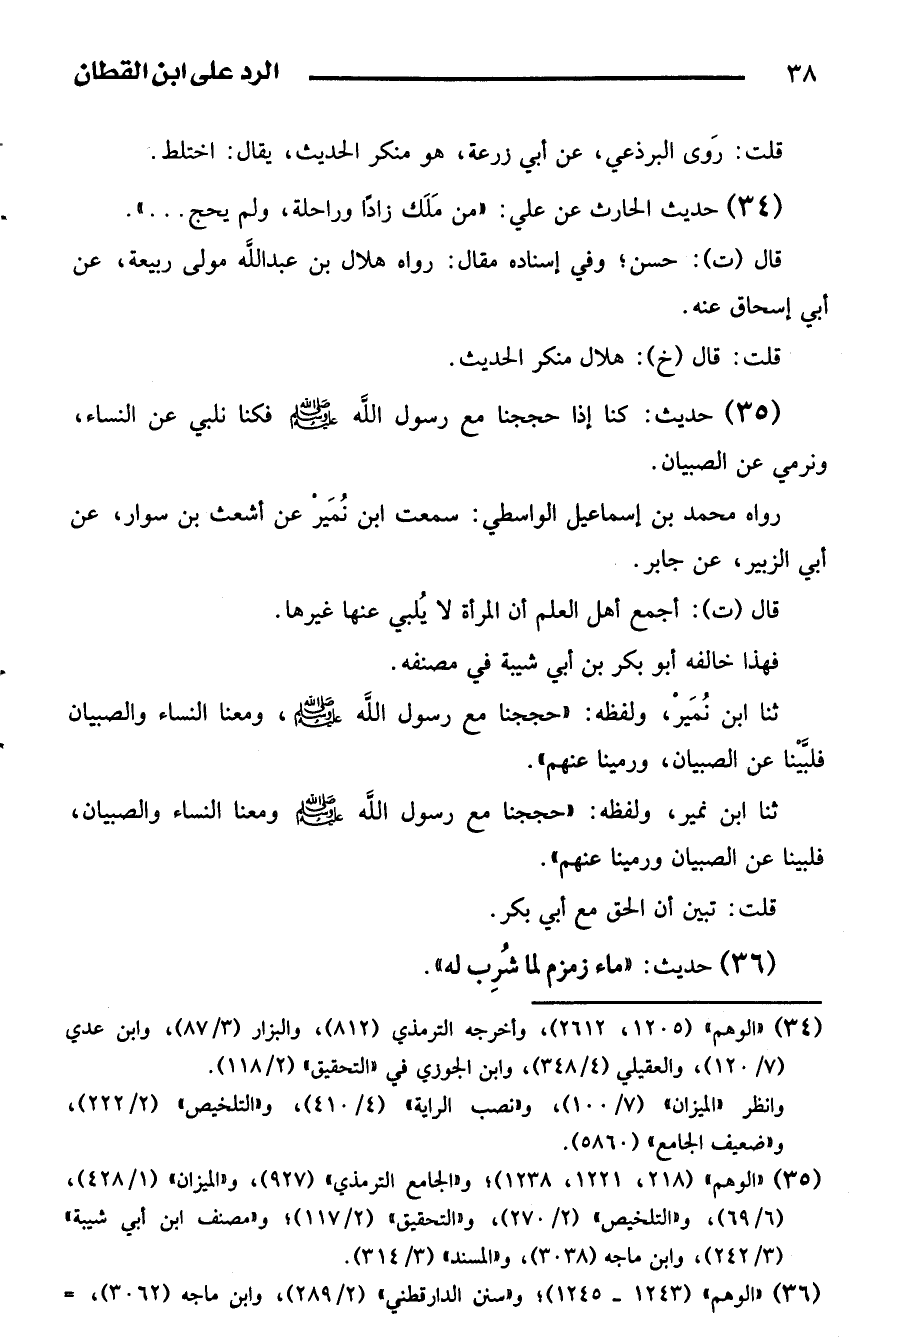 ٣٨ الرد على ابن القطان
قلت: رَوى البرذعي، عن أبي زرعة، هو منكر الحديث، يقال: اختلط.
(٣٤) حديث الحارث عن علي: «من مَلَك زادًا وراحلة، ولم يحج...».
قال (ت): حسن؛ وفي إسناده مقال: رواه هلال بن عبداللَّه مولى ربيعة، عن
أبي إسحاق عنه.
قلت: قال (خ): هلال منكر الحديث.
(٣٥) حديث: كنا إذا حججنا مع رسول اللَّه ﷺ فكنا نلبي عن النساء،
ونرمي عن الصبيان.
رواه محمد بن إسماعيل الواسطي: سمعت ابن نُمَيرْ عن أشعث بن سوار، عن
أبي الزبير، عن جابر.
قال (ت): أجمع أهل العلم أن المرأة لا يُلبي عنها غيرها.
فهذا خالفه أبو بكر بن أبي شيبة في مصنفه.
ثنا ابن نُمَيرْ، ولفظه: «حججنا مع رسول اللَّه ﷺ، ومعنا النساء والصبيان
فلبَّيْنا عن الصبيان، ورمينا عنهم».
ثنا ابن نمير، ولفظه: «حججنا مع رسول اللَّه ﷺ ومعنا النساء والصبيان،
فلبينا عن الصبيان ورمينا عنهم».
قلت: تبين أن الحق مع أبي بكر.
(٣٦) حديث: «ماء زمزم لما شُرِب له».
(٣٤) «الوهم» (١٢٠٥، ٢٦١٢)، وأخرجه الترمذي (٨١٢)، والبزار (٨٧/٣)، وابن عدي
(١٢٠/٧)، والعقيلي (٣٤٨/٤)، وابن الجوزي في «التحقيق» (١١٨/٢).
وانظر «الميزان» (١٠٠/٧)، و«نصب الراية» (٤١٠/٤)، و«التلخيص» (٢٢٢/٢)،
و«ضعيف الجامع» (٥٨٦٠).
(٣٥) «الوهم» (٢١٨، ١٢٢١، ١٢٣٨)؛ و«الجامع الترمذي» (٩٢٧)، و«الميزان» (٤٢٨/١)،
(٦٩/٦)، و«التلخيص» (٢٧٠/٢)، و«التحقيق» (١١٧/٢)؛ و«مصنف ابن أبي شيبة»
(٢٤٢/٣)، وابن ماجه (٣٠٣٨)، و«المسند» (٣١٤/٣).
(٣٦) «الوهم» (١٢٤٣ ـ ١٢٤٥)؛ و«سنن الدارقطني» (٢٨٩/٢)، وابن ماجه (٣٠٦٢)، =